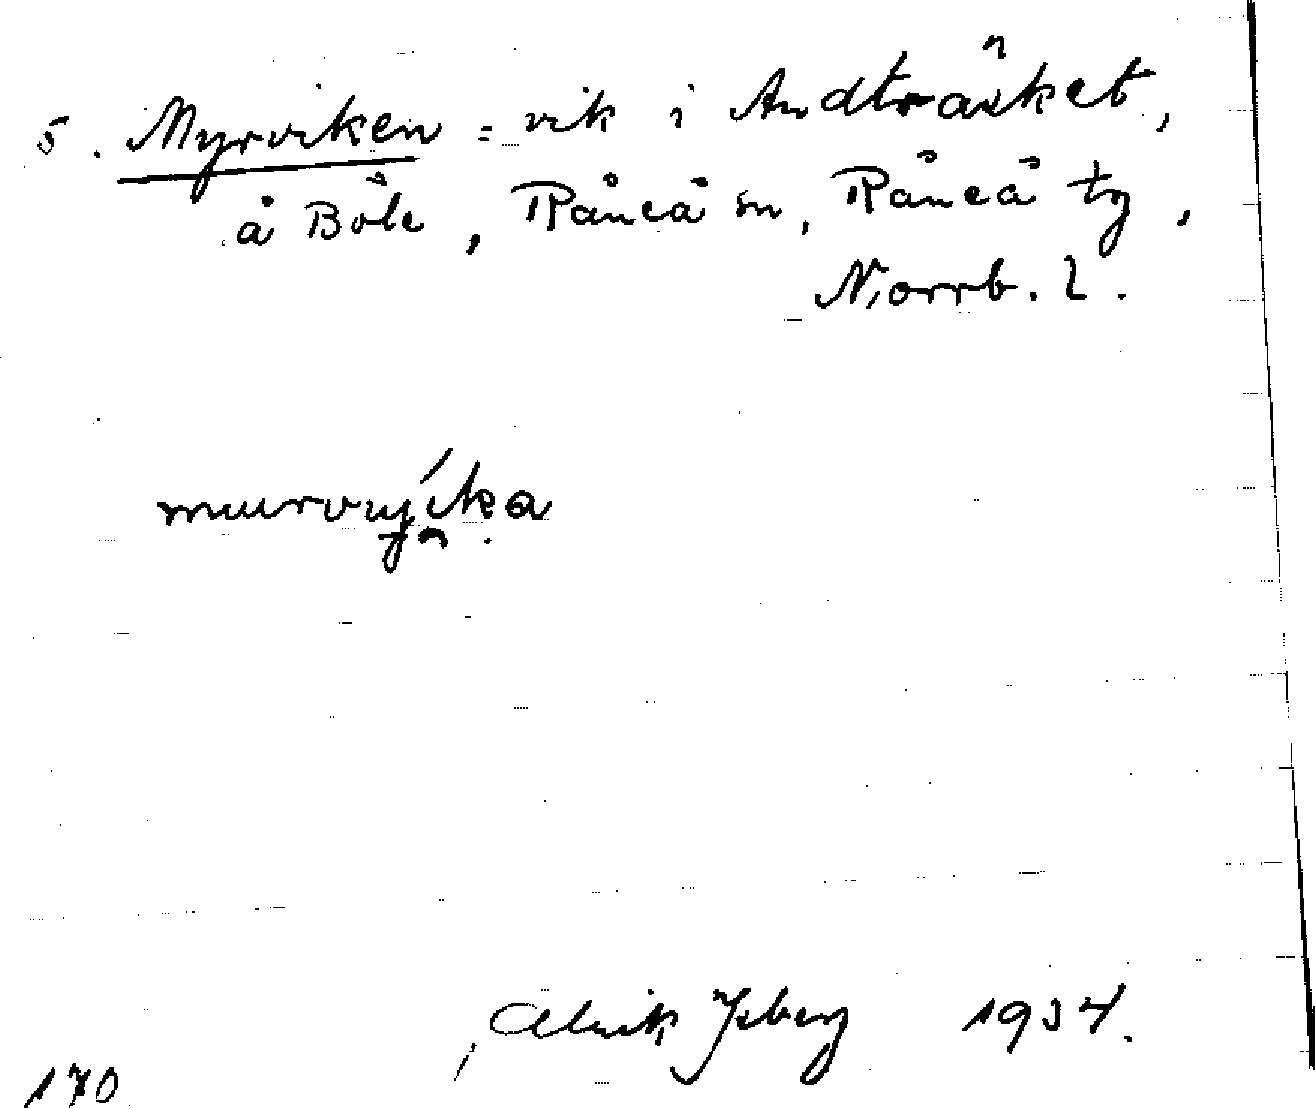 5. Myrviken = vik i Andträsket,
å Böle, Råneå sn, Råneå tg,
Norrb. l.
Alrik Isberg 1934.
170